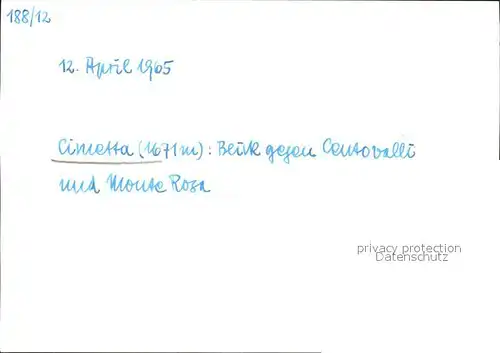 188/12
12. April 1965
Cimetta (1671m): Blick gegen Centovalli
und Monte Rosa
privacy protection
Datenschutz